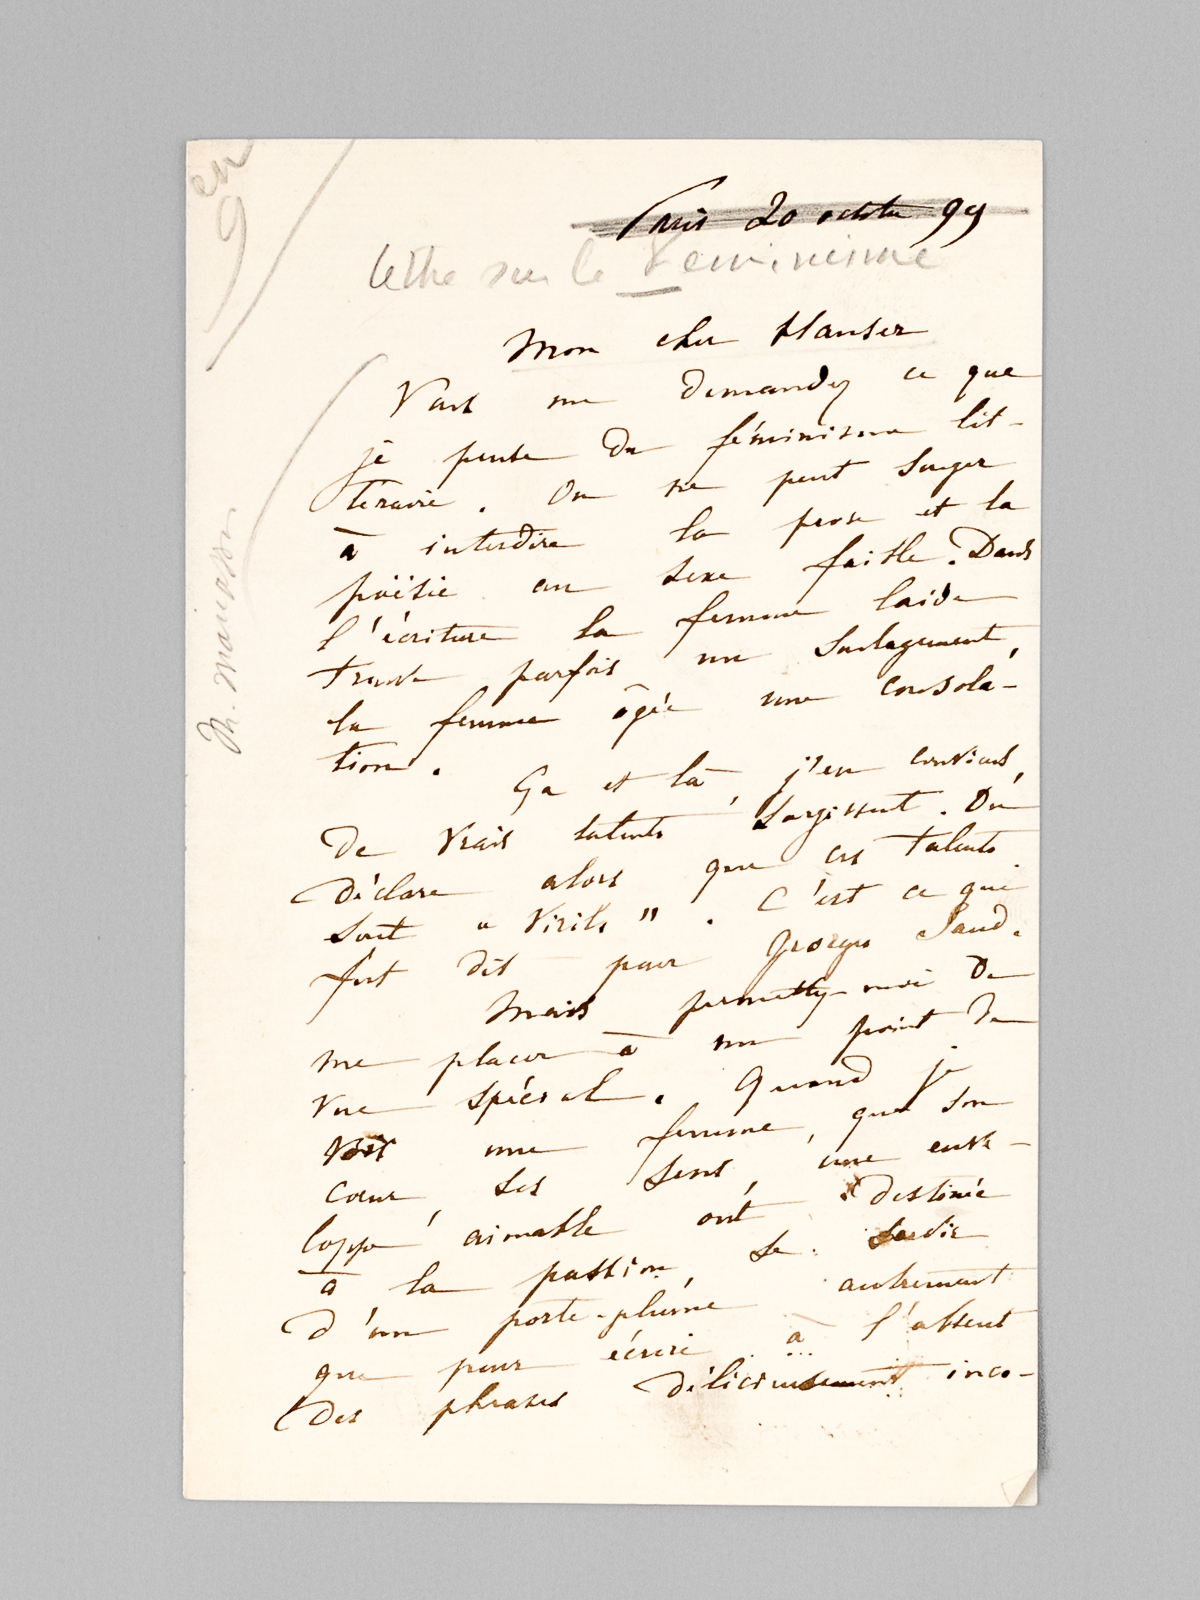 en
9
Paris 20 octobre 99
lettre sur le Feminisme
Mon cher Hanser
Vous me demandez ce que
je pense du féminisme lit-
téraire. On ne peut songer
à interdire la prose et la
poësie au sexe faible. Dans
l'écriture la femme laide
trouve parfois un soulagement,
la femme âgée une consola-
tion.
Ça et là, j'en conviens,
de vrais talents surgissent. On
déclare alors que ces talents
sont « virils ". C'est ce qui
fut dit pour Georges Sand.
Mais permettez-moi de
me placer à un point de
vue spécial. Quand je
vois une femme, que son
cœur, ses sens, une enve-
loppe aimable ont destinée
à la passion, se servir
d'un porte-plume autrement
que pour écrire à l'absent
des phrases délicieusement inco-